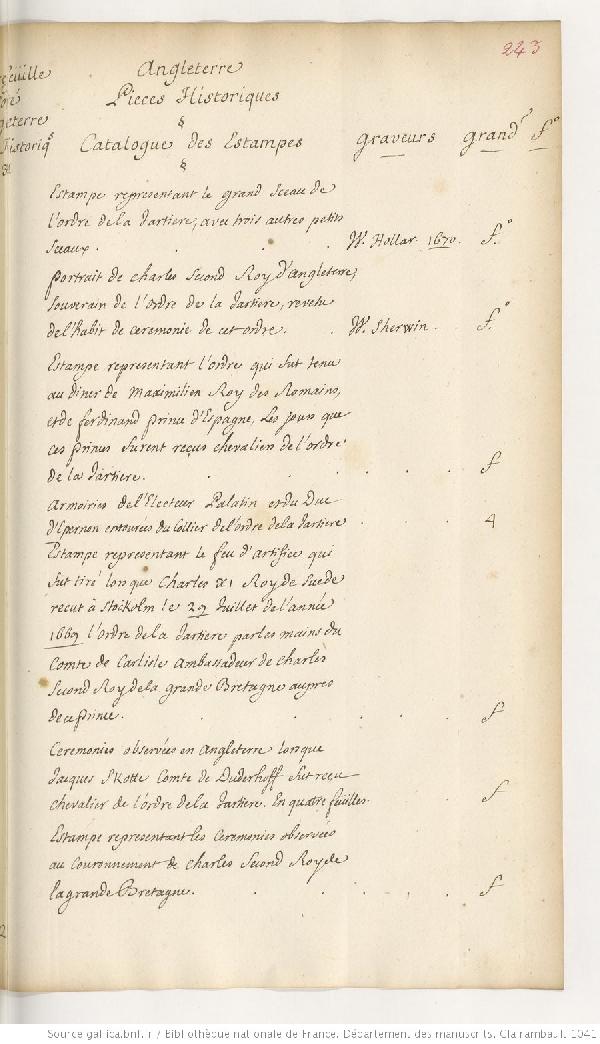 223
Angleterre
Pieces Historiques
§
Catalogue des Estampes
§
graveurs
grandr
f°
Estampe representant le grand Sceau de
l'ordre de la Jartiere, avec trois autres petits
Sceaux.
W. Hollar. 1670.
f.°
portrait de Charles Second Roy d'Angleterre,
Souverain de l'Ordre de la Jartiere, revetu
de l'habit de ceremonie de cet ordre.
W. Sherwin.
f.°
Estampe representant l'ordre qui fut tenu
au diner de Maximilien Roy des Romains,
et de ferdinand prince d'Espagne, Les jours que
ces princes furent reçus chevalien de l'ordre
de la Jartiere.
f
Armoiries de l'Electeur Palatin et du Duc
d'Epernon entourées du Collier de l'ordre de la Jartiere
4
Estampe representant le feu d'artifice qui
fut tiré lorsque Charles XI Roy de Suede
recut à Stockolm le 29 Juillet de l'année
1669 l'ordre de la Jartiere par les mains du
Comte de Carlisle Ambassadeur de Charles
Second Roy de la grande Bretagne aupres
de ce prince.
f
Ceremonies observées en Angleterre lorsque
Jacques Skotte Comte de Duderhoff fut reçu
Chevalier de l'ordre de la Jartiere. En quatre feuilles.
f
Estampe representant les Ceremonies observées
au Couronnement de Charles Second Roy de
la grande Bretagne.
f
Source gallica.bnf.fr / Bibliothèque nationale de France. Département des manuscrits. Clairambault 1041